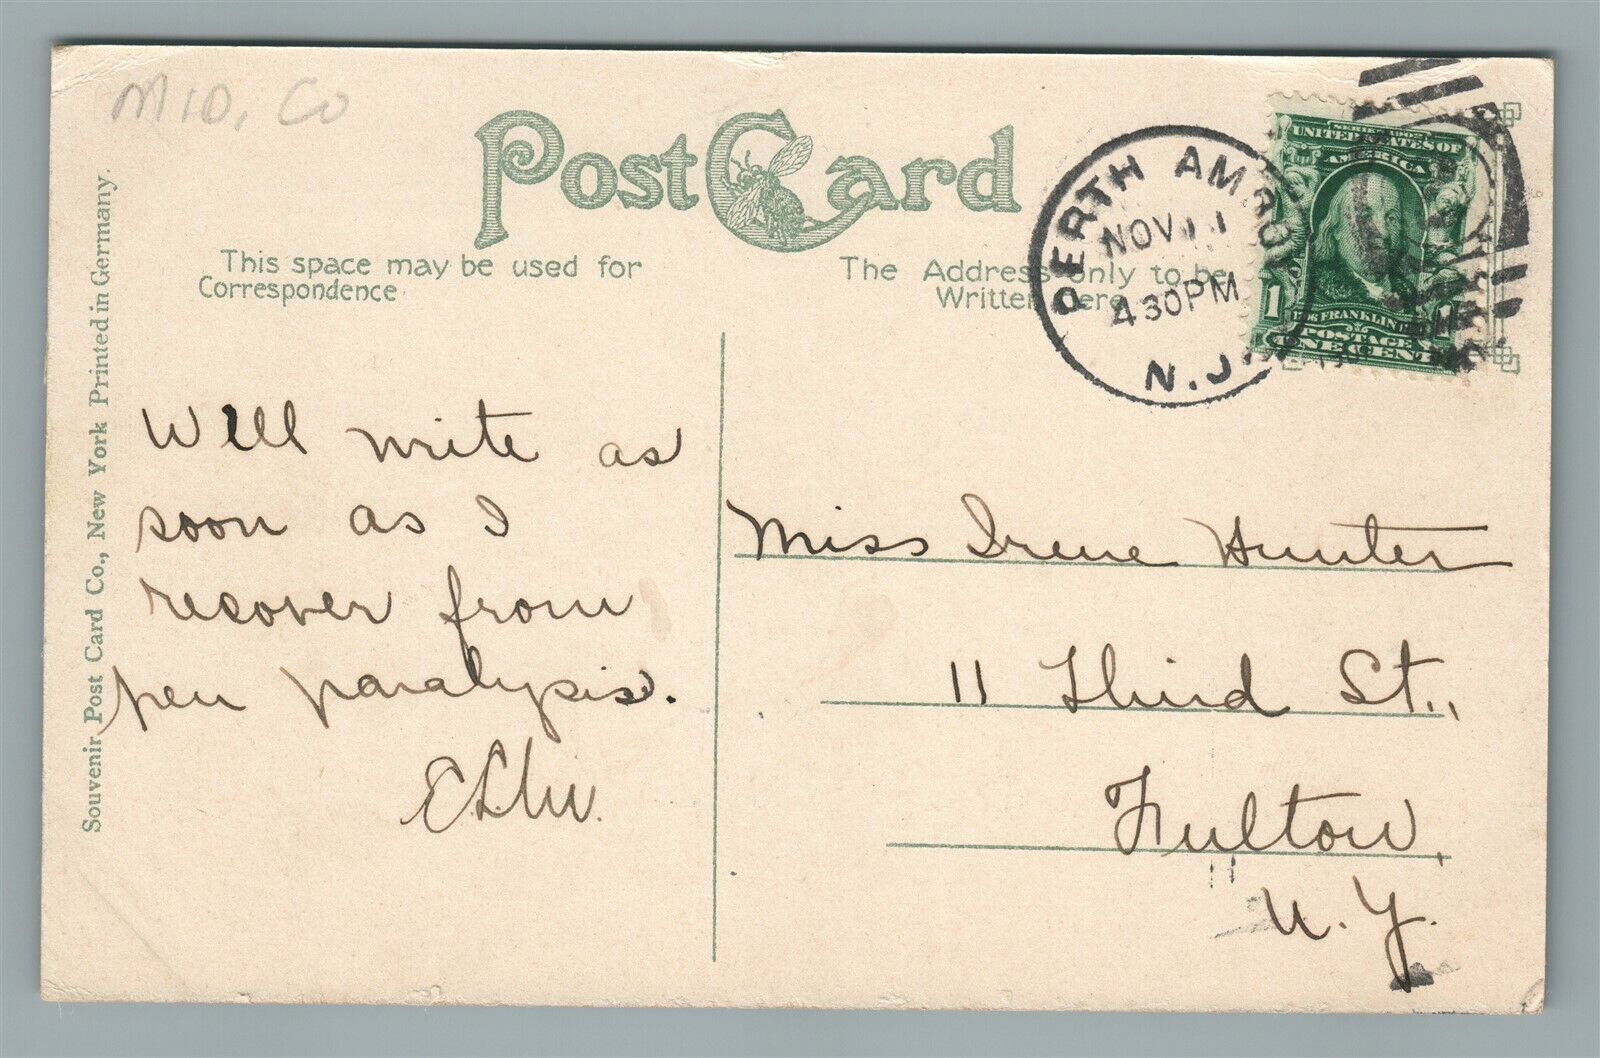 MID, Co
Post Card
This space may be used for
Correspondence
The Address only to be
Written Here
PERTH AMBOY
NOV 11
4 30 PM
N.J.
SERIES 1902
UNITED STATES OF
AMERICA
1 1
1706 FRANKLIN
POSTAGE
ONE CENT
Souvenir Post Card Co., New York Printed in Germany.
Will write as
soon as I
recover from
pen paralysis.
Miss Irene Hunter
11 Third St.,
Fulton,
N. Y.